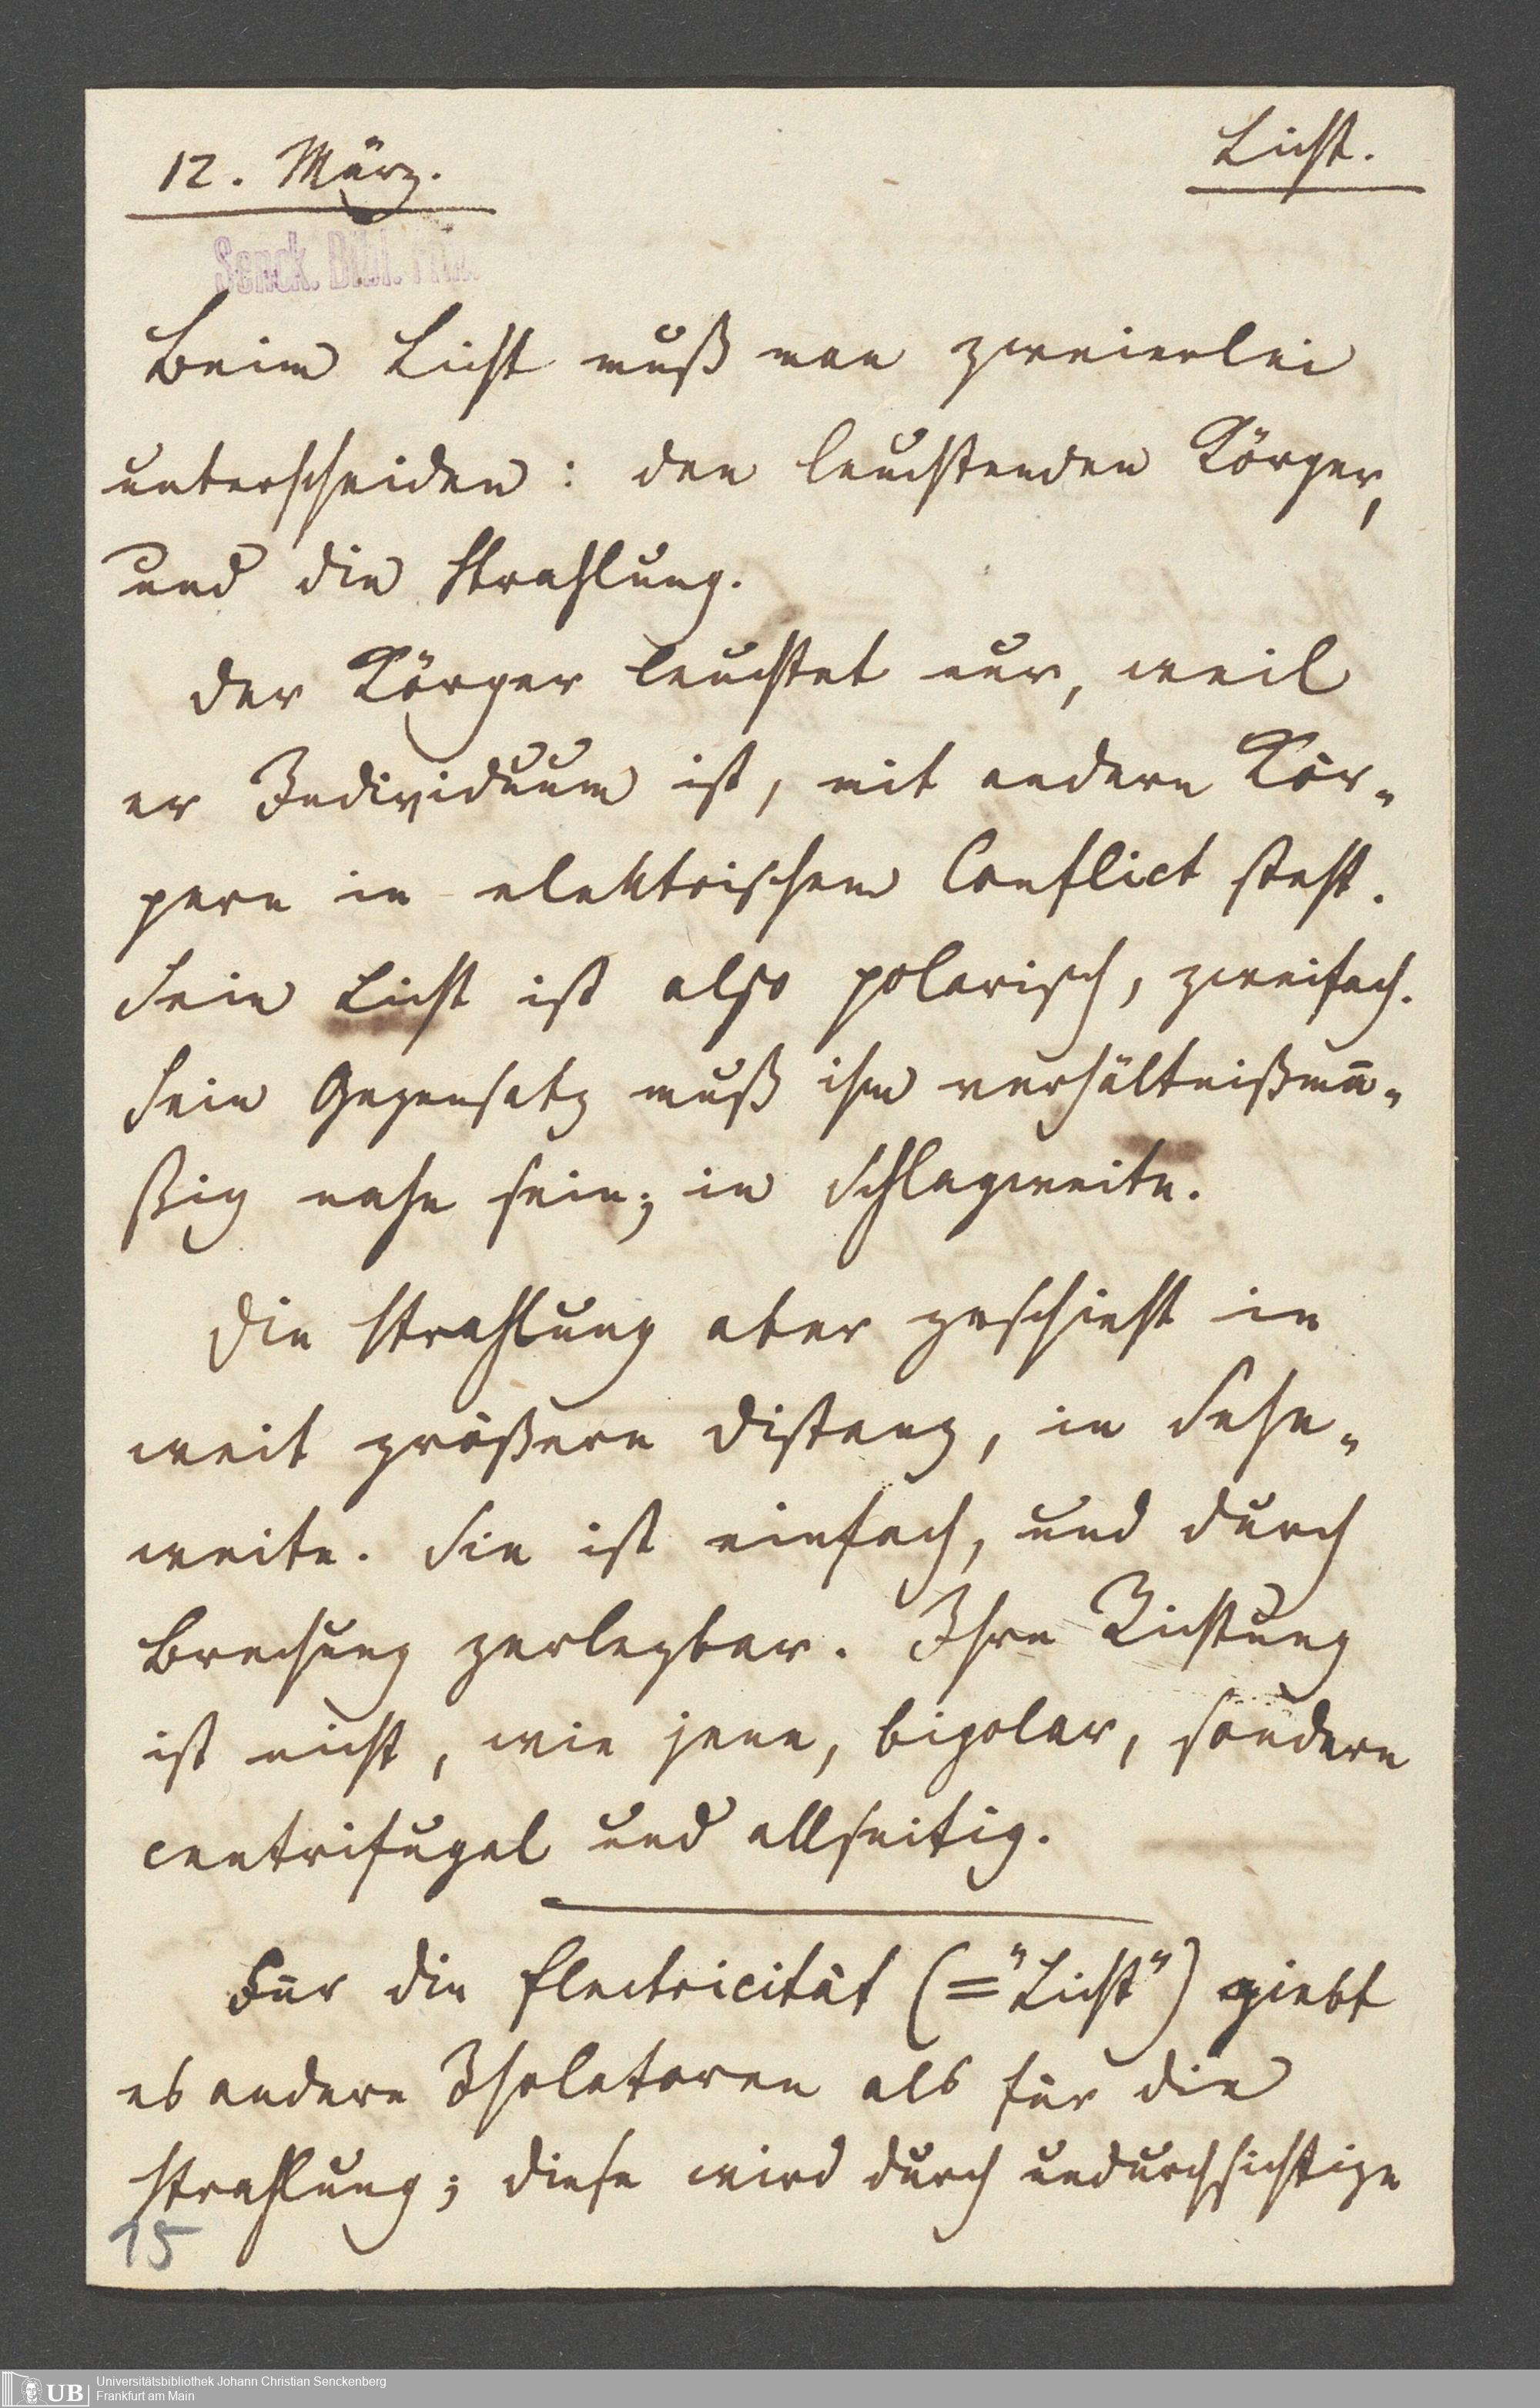 12. März.
Licht.
Senck. Bibl.
Beim Licht muß man zweierlei
unterscheiden: den leuchtenden Körper,
und die Strahlung.
Der Körper leuchtet nur, weil
er Individuum ist, mit andern Kör-
pern in elektrischem Conflict steht.
Sein Licht ist also polarisch, zweifach.
Sein Gegensatz muß ihm verhältnißmä-
ßig nahe sein; in Schlagweite.
Die Strahlung aber geschieht in
weit größern Distanz, in Sehe-
weite. Sie ist einfach, und durch
Brechung zerlegbar. Ihre Richtung
ist nicht, wie jene, bipolar, sondern
centrifugal und allseitig.
Für die Electricität (="Licht") giebt
es andere Isolatoren als für die
Strahlung; diese wird durch undurchsichtige
15
UB
Universitätsbibliothek Johann Christian Senckenberg
Frankfurt am Main